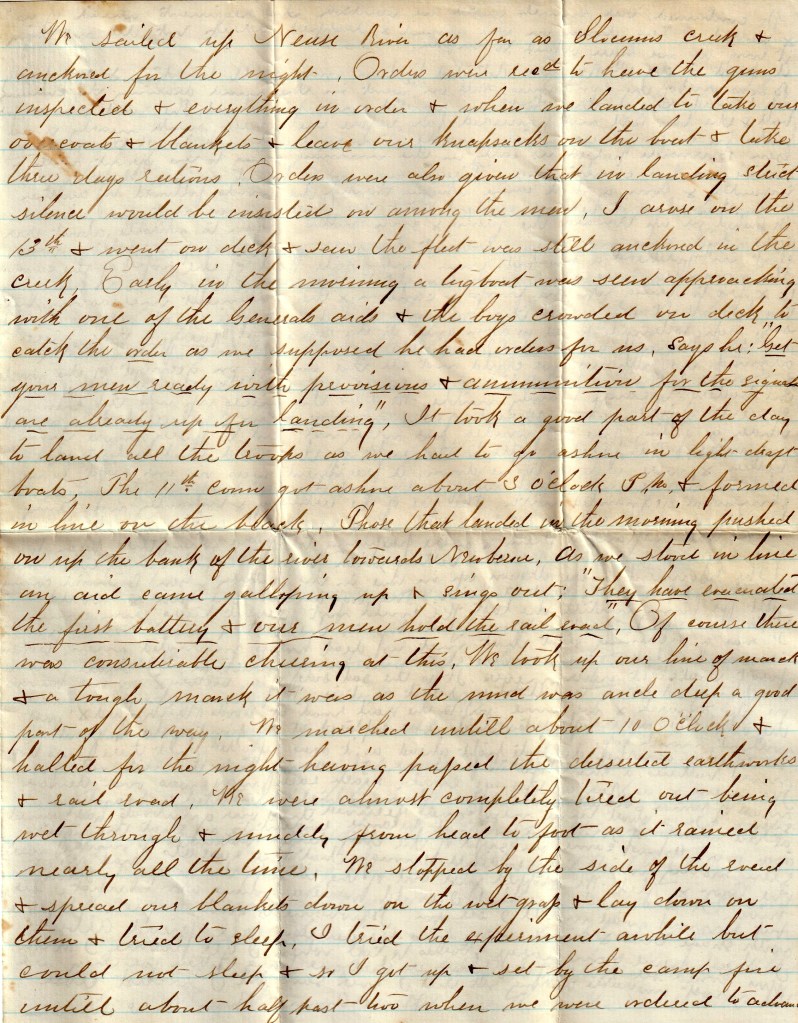 We sailed up Neuse River as far as Slocums creek &
anchored for the night. Orders were recd to have the guns
inspected & everything in order & when we landed to take our
overcoats & blankets & leave our knapsacks on the boat & take
three days rations. Orders were also given that in landing strict
silence would be insisted on among the men. I arose on the
13th & went on deck & saw the fleet was still anchored in the
creek. Early in the morning a tugboat was seen approaching
with one of the Generals aids & the boys crowded on deck to
catch the order as we supposed he had orders for us. Says he: "Get
your men ready with provisions & ammunition for the signals
are already up for landing". It took a good part of the day
to land all the troops as we had to go ashore in light draft
boats. The 11th Conn got ashore about 3 o'clock P.M. & formed
in line on the black. Those that landed in the morning pushed
on up the bank of the river towards Newberne. As we stood in line
an aid came galloping up & sings out: "They have evacuated
the first battery & our men hold the rail road". Of course there
was considerable cheering at this. We took up our line of march
& a tough march it was as the mud was ancle deep a good
part of the way. We marched untill about 10 O'Clock &
halted for the night having passed the deserted earthworks
& rail road. We were almost completely tired out being
wet through & muddy from head to foot as it rained
nearly all the time. We stopped by the side of the road
& spread our blankets down on the wet grass & lay down on
them & tried to sleep. I tried the experiment awhile but
could not sleep & so I got up & set by the camp fire
untill about half past two when we were ordered to advance